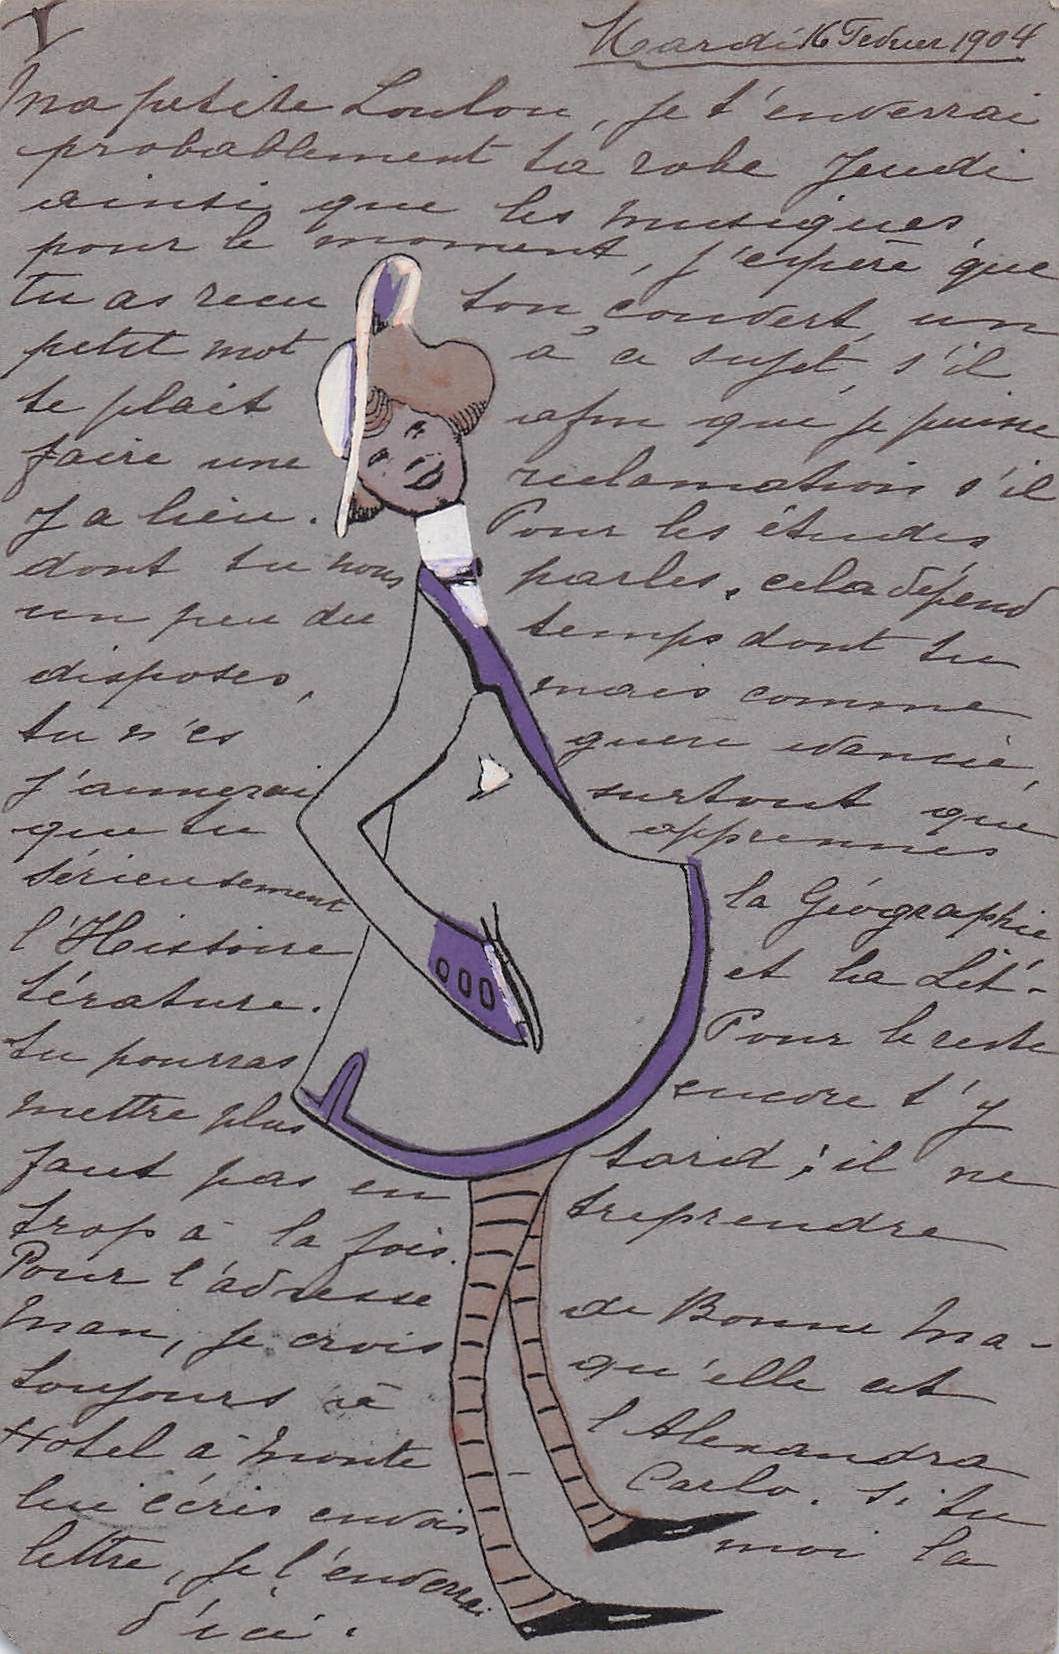 I
Mardi 16 Fevrier 1904
Ma petite Loulou, je t'enverrai
probablement ta robe Jeudi
ainsi que les musiques,
pour le moment, j'espère que
tu as recu ton couvert, un
petit mot à ce sujet, s'il
te plait afin que je puisse
faire une reclamation s'il
y a lieu. Pour les études
dont tu nous parles, cela dépend
un peu du temps dont tu
disposes, mais comme
tu n'es guere avancée,
j'aimerai surtout que
que tu apprennes
sérieusement la Géographie
l'Histoire et la Lit-
térature. Pour le reste
tu pourras encore t'y
mettre plus tard; il ne
faut pas en treprendre
trop à la fois.
Pour l'adresse de Bonne Ma-
man, je crois qu'elle est
toujours à l'Alexandra
Hotel à Monte Carlo. Si tu
lui écris envois moi la
lettre, je l'enverrai
d'ici.